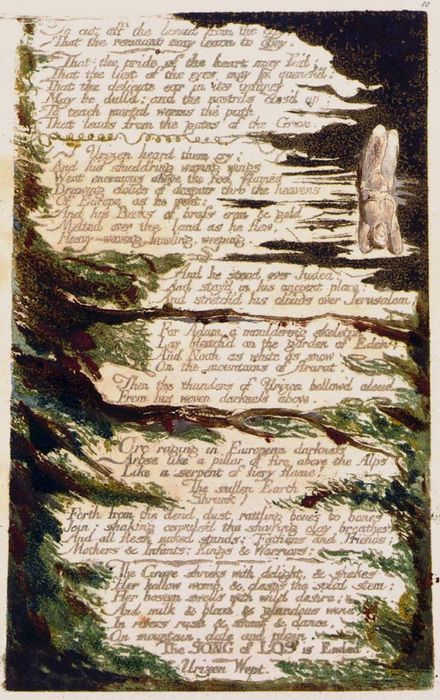 10
To cut off the bread from the city,
That the remnant may learn to obey.
That the pride of the heart may fail;
That the lust of the eyes, may be quench'd:
That the delicate ear in its infancy
May be dull'd; and the nostrils clos'd up
To teach mortal worms the path
That leads from the gates of the Grave.
Urizen heard them cry;
And his shudd'ring waving wings
Went enormous above the red flames
Drawing clouds of despair thro' the heavens
Of Europe as he went:
And his Books of brass iron & gold
Melted over the land as he flew,
Heavy-waving, howling, weeping.
And he stood over Judea:
And stay'd in his ancient place:
And stretch'd his clouds over Jerusalem;
For Adam, a mouldering skeleton
Lay bleach'd on the garden of Eden;
And Noah as white as snow
On the mountains of Ararat.
Then the thunders of Urizen bellow'd aloud
From his woven darkness above.
Orc raging in European darkness
Arose like a pillar of fire above the Alps
Like a serpent of fiery flame!
The sullen Earth
Shrunk!
Forth from the dead dust rattling bones to bones
Join: shaking convuls'd the shiv'ring clay breathes
And all flesh naked stands: Fathers and Friends;
Mothers & Infants; Kings & Warriors:
The Grave shrieks with delight, & shakes
Her hollow womb, & clasps the solid stem:
Her bosom swells with wild desire:
And milk & blood & glandous wine
In rivers rush & shout & dance,
On mountain, dale and plain.
The SONG of LOS is Ended.
Urizen Wept.